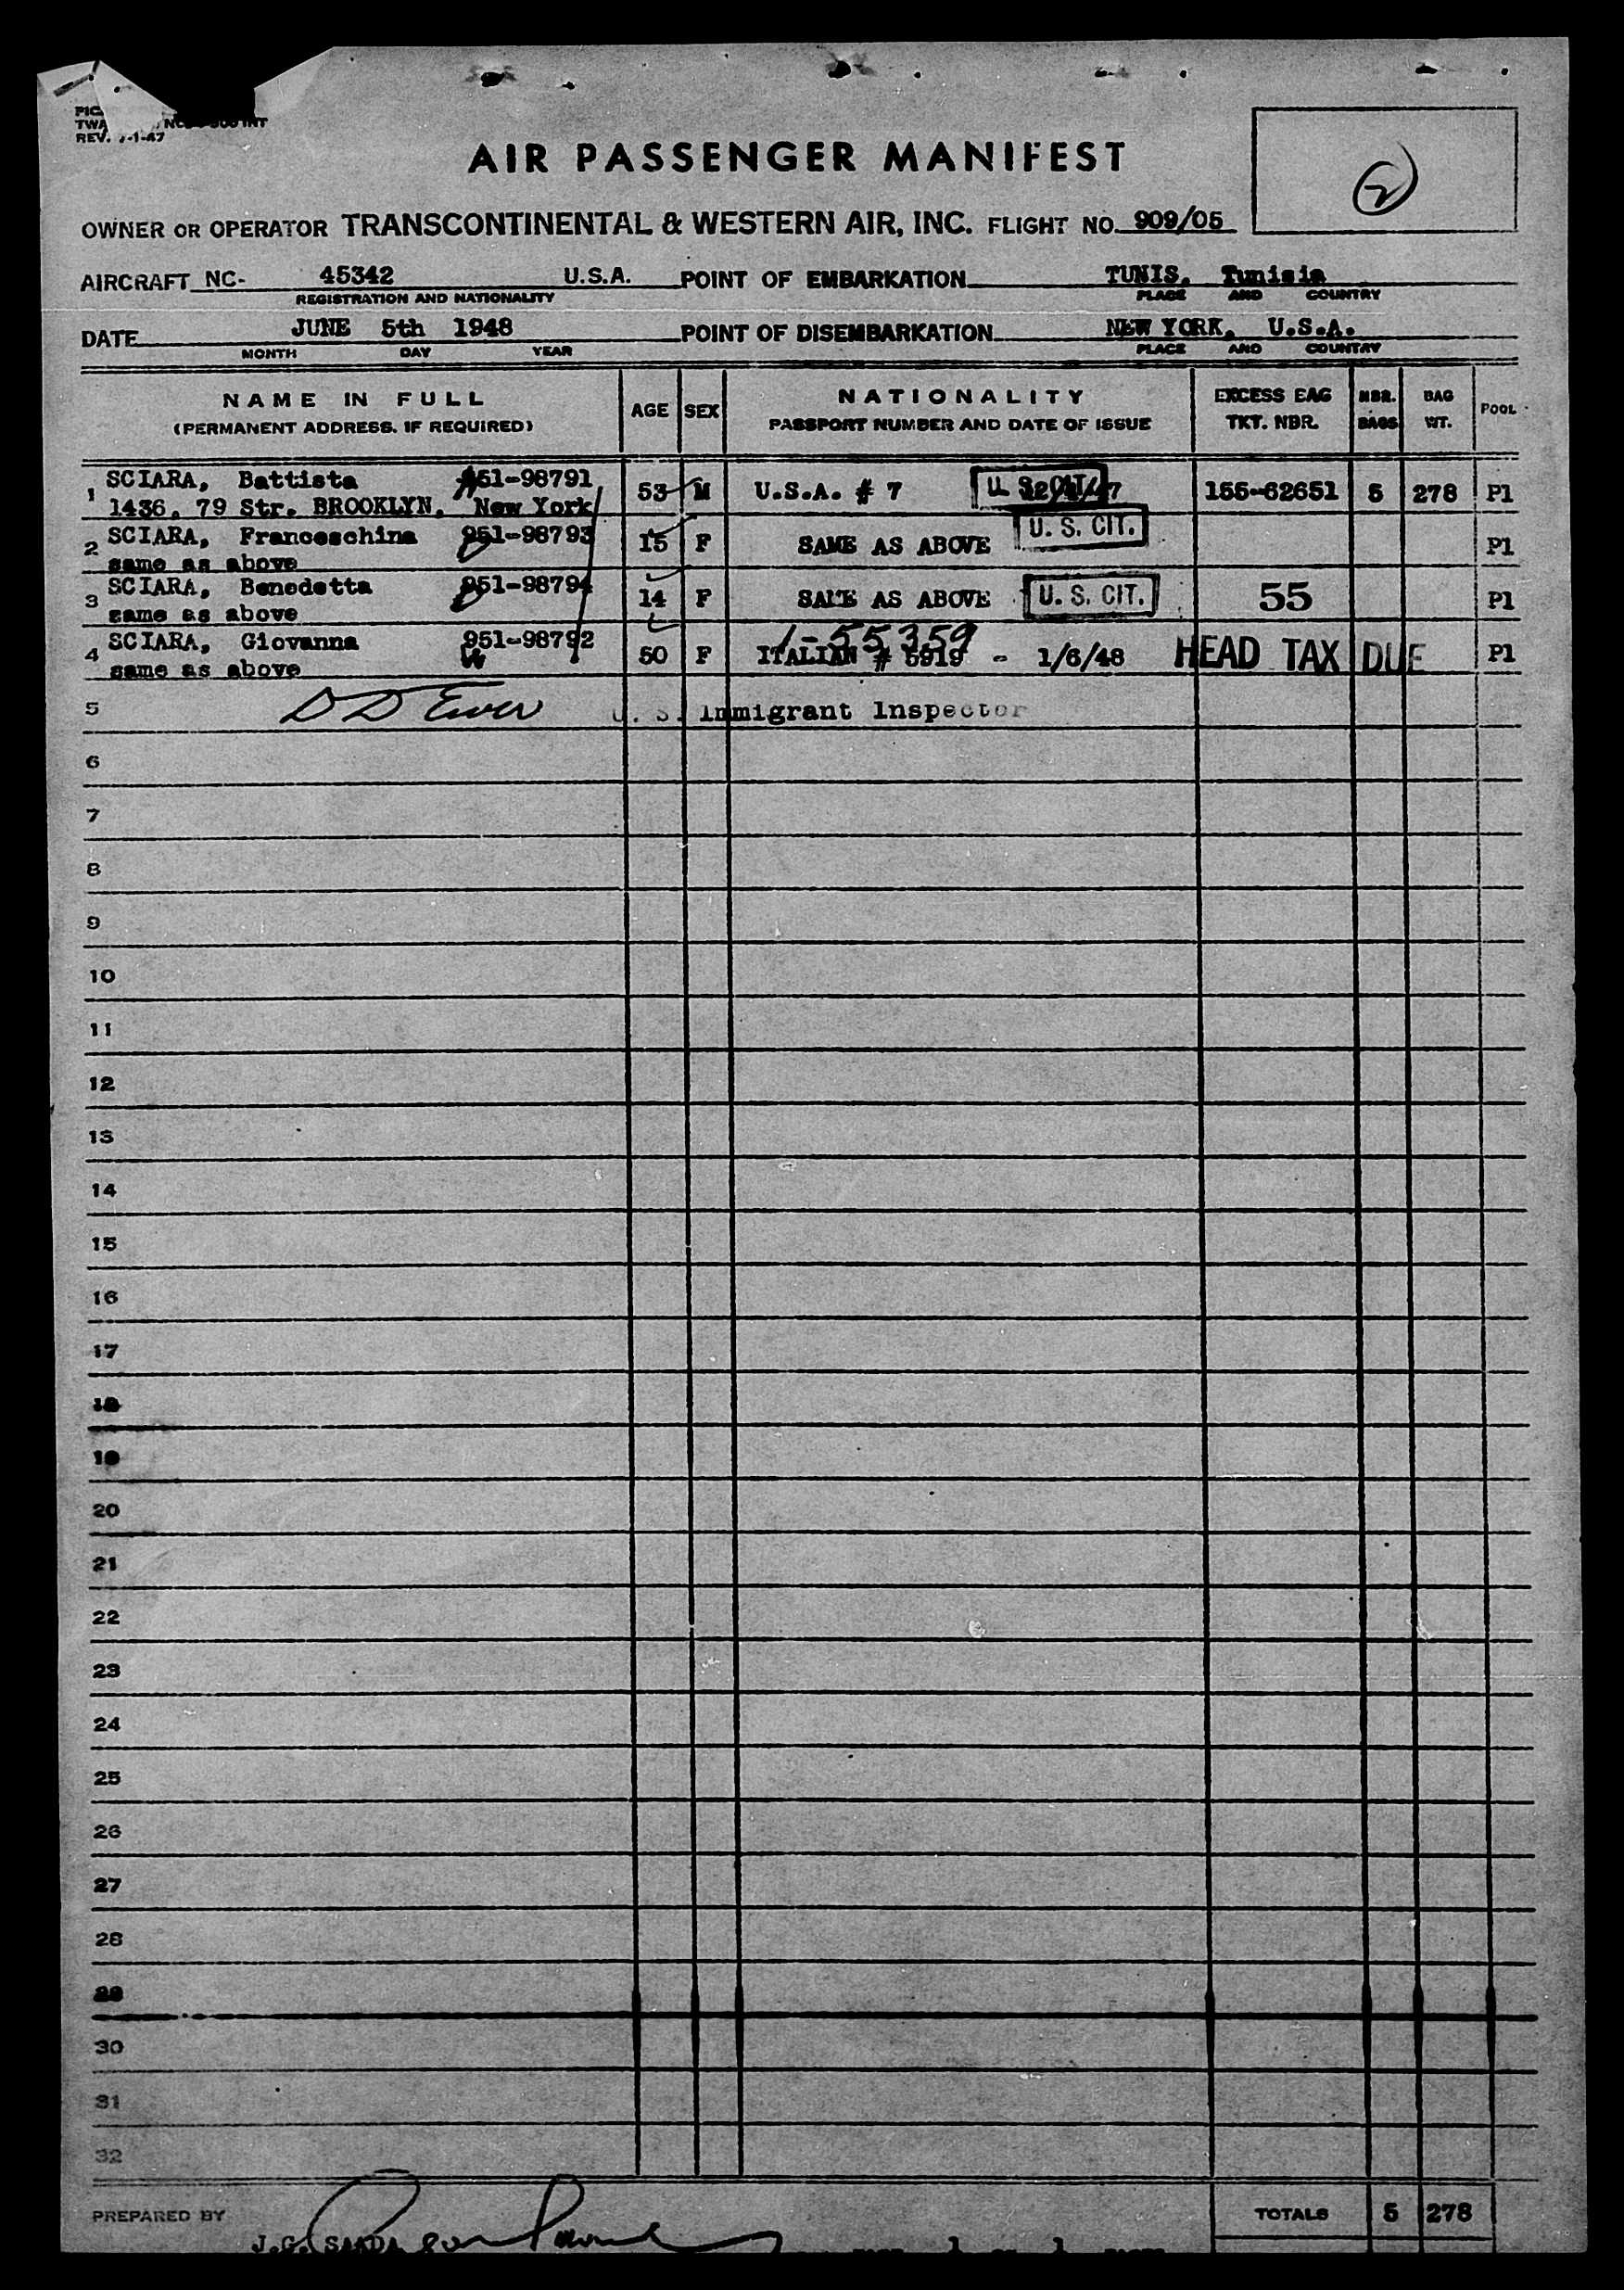 REV.
AIR PASSENGER MANIFEST
2
OWNER OR OPERATOR TRANSCONTINENTAL & WESTERN AIR, INC. FLIGHT NO. 909/05
AIRCRAFT NC- 45342 U.S.A. POINT OF EMBARKATION TUNIS, Tunisia
REGISTRATION AND NATIONALITY PLACE AND COUNTRY
DATE JUNE 5th 1948 POINT OF DISEMBARKATION NEW YORK, U.S.A.
MONTH DAY YEAR PLACE AND COUNTRY
NAME IN FULL AGE SEX NATIONALITY EXCESS BAG NBR. BAG POOL
(PERMANENT ADDRESS, IF REQUIRED) PASSPORT NUMBER AND DATE OF ISSUE TKT. NBR. BAGS WT.
1 SCIARA, Battista 951-98791 53 M U.S.A. # 7 U. S. CIT. 155-62651 5 278 P1
1436, 79 Str. BROOKLYN, New York
2 SCIARA, Franceschina 951-98793 15 F SAME AS ABOVE U. S. CIT. P1
same as above
3 SCIARA, Benedetta 951-98794 14 F SAME AS ABOVE U. S. CIT. 55 P1
same as above
1-55359
4 SCIARA, Giovanna 951-98792 50 F ITALIAN # 5919 - 1/6/48 HEAD TAX DUE P1
same as above
5 U. S. Immigrant Inspector
6
7
8
9
10
11
12
13
14
15
16
17
18
19
20
21
22
23
24
25
26
27
28
29
30
31
32
PREPARED BY TOTALS 5 278
J.G. SAADA